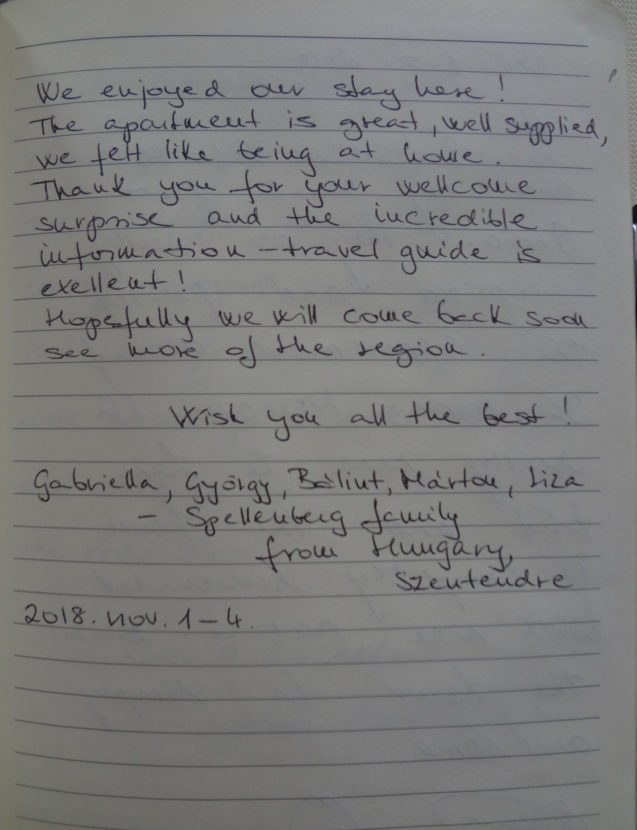 We enjoyed our stay here!
The apartment is great, well supplied,
we felt like being at home.
Thank you for your wellcome
surprise and the incredible
information - travel guide is
exellent!
Hopefully we will come back soon
see more of the region.
Wish you all the best!
Gabriella, György, Bálint, Márton, Liza
- Spellenberg family
from Hungary,
Szentendre
2018. nov. 1-4.